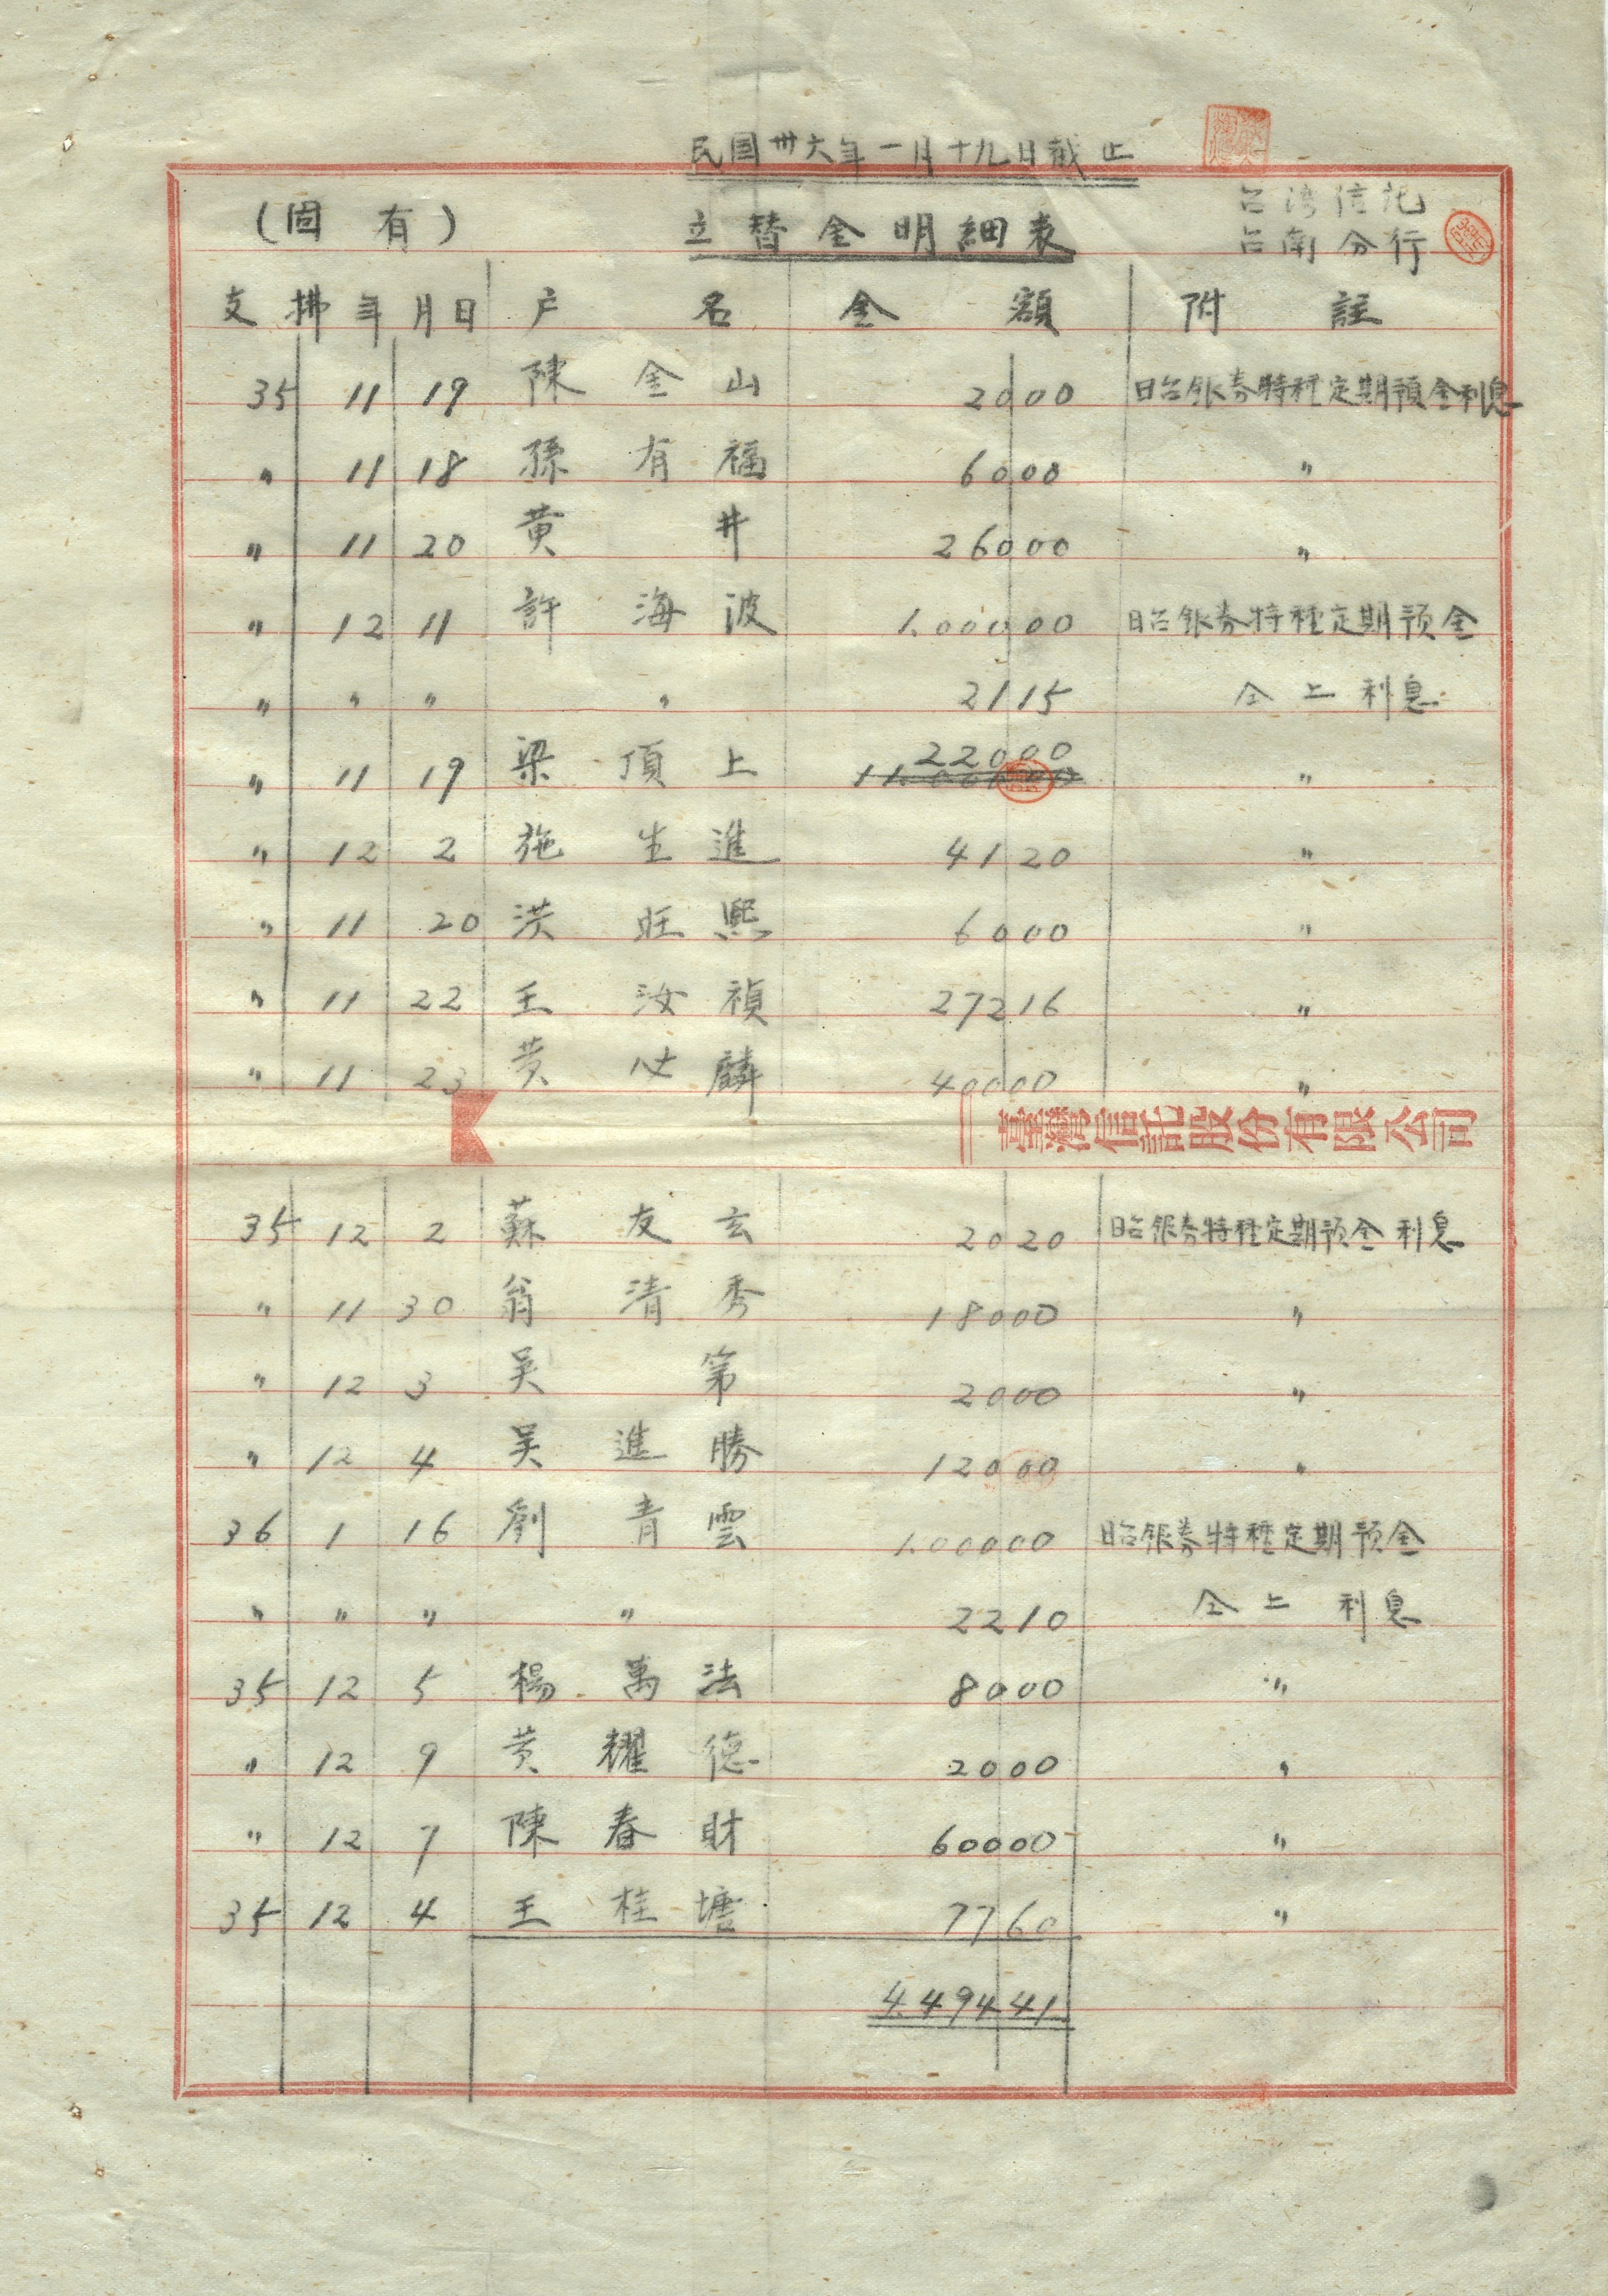 民国卅六年一月十九日截止
(固有) 立替金明細表 台湾信託
台南分行
支拂年月日 户名 金額 附註
35 11 19 陳金山 2000 旧台銀券特種定期預金利息
〃 11 18 孫有福 6000 〃
〃 11 20 黄井 26000 〃
〃 12 11 許海波 1.00000 旧台銀券特種定期预金
〃 〃 〃 〃 2115 仝上利息
〃 11 19 梁頂上 22000 〃
〃 12 2 施生進 4120 〃
〃 11 20 洪旺熙 6000 〃
〃 11 22 王汝禎 27216 〃
〃 11 23 黄必麟 40000 〃
臺灣信託股份有限公司
35 12 2 蘇友玄 2020 旧台銀券特種定期预金利息
〃 11 30 翁清秀 18000 〃
〃 12 3 吴第 2000 〃
〃 12 4 吴進勝 12000 〃
36 1 16 劉青雲 1.00000 旧台銀券特種定期预金
〃 〃 〃 〃 2210 仝上利息
35 12 5 楊萬法 8000 〃
〃 12 9 黄耀德 2000 〃
〃 12 7 陳春財 60000 〃
35 12 4 王桂塘 7760 〃
4.49441